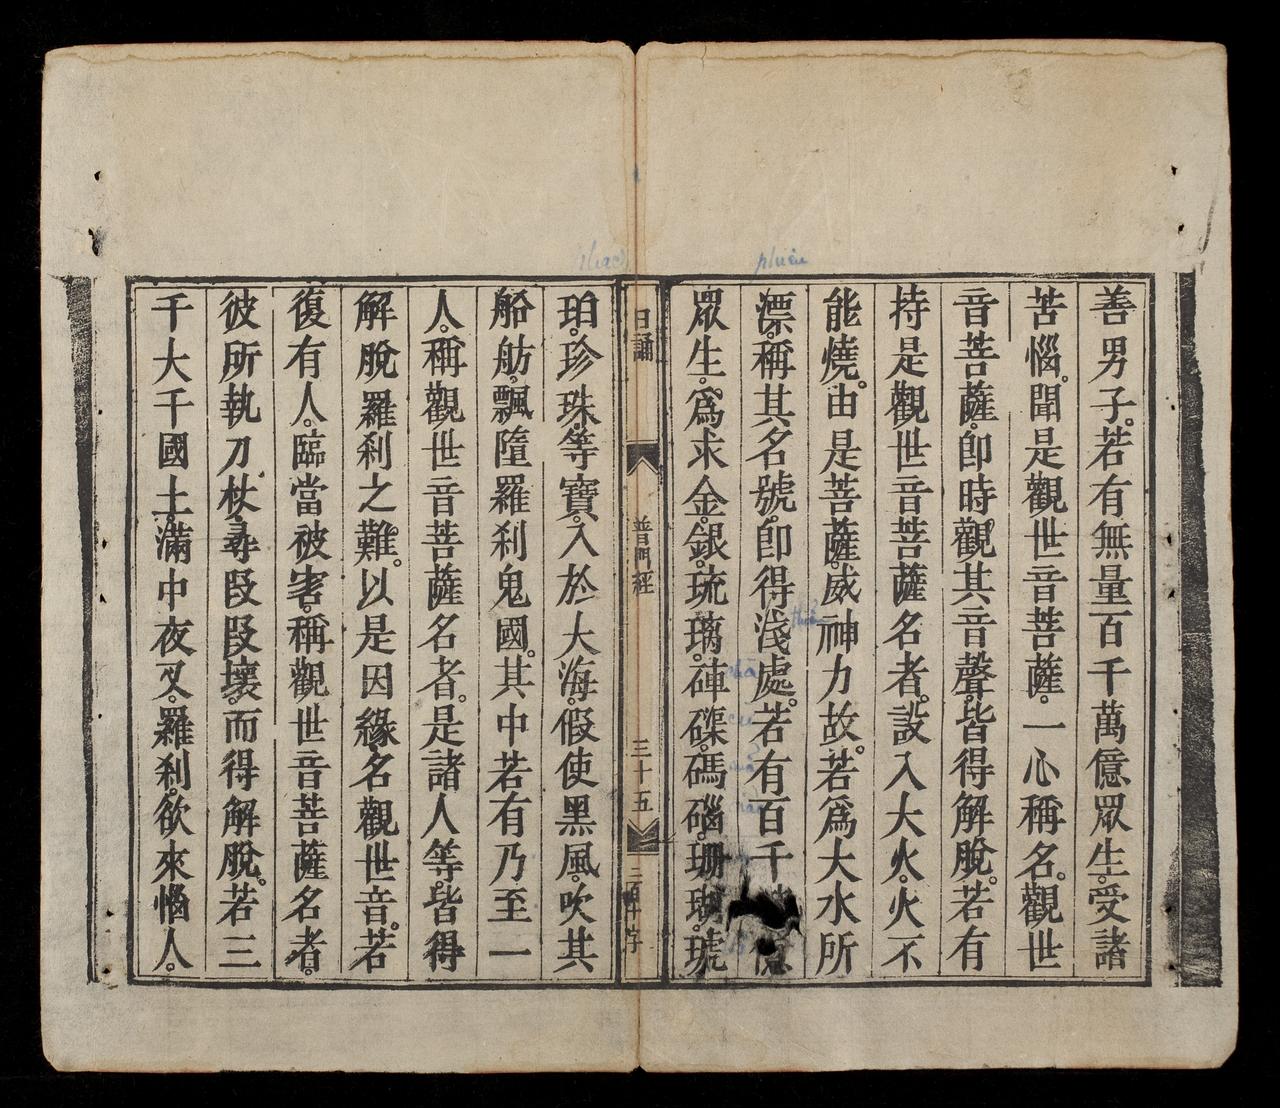 善男子。若有無量百千萬億眾生。受諸
苦惱。聞是觀世音菩薩。一心稱名。觀世
音菩薩。卽時觀其音聲。皆得解脫。若有
持是觀世音菩薩名者。設入大火。火不
能燒。由是菩薩。威神力故。若爲大水所
漂。稱其名號。卽得淺處。若有百千億
眾生。爲求金。銀。琉璃。硨磲。碼碯。珊瑚。琥
日誦
普門經
三十五
珀。珍珠。等寶。入於大海。假使黑風。吹其
船舫。飄墮羅刹鬼國。其中若有乃至一
人。稱觀世音菩薩名者。是諸人等。皆得
解脫羅刹之難。以是因緣。名觀世音。若
復有人。臨當被害。稱觀世音菩薩名者。
彼所執刀杖。尋段段壞。而得解脫。若三
千大千國土。滿中夜叉。羅刹。欲來惱人。
phiêu